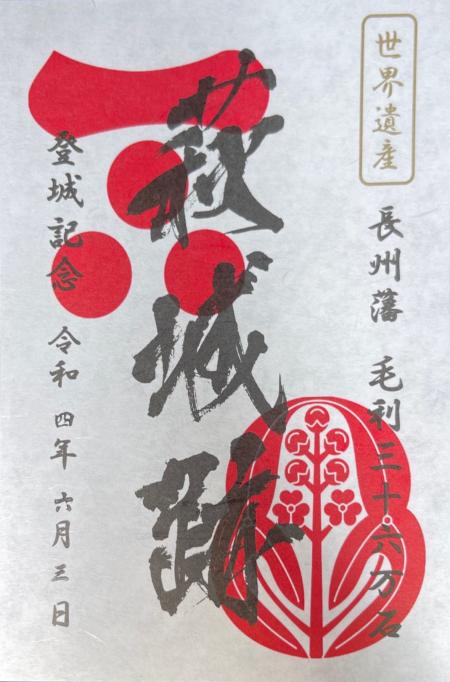 世界遺産
長州藩 毛利三十六万石
萩城跡
登城記念 令和四年 六月三日